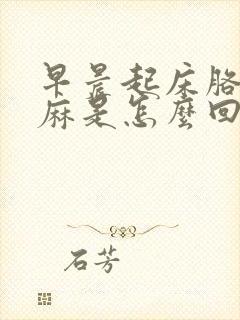 早晨起床胳
麻是怎麼回
石芳